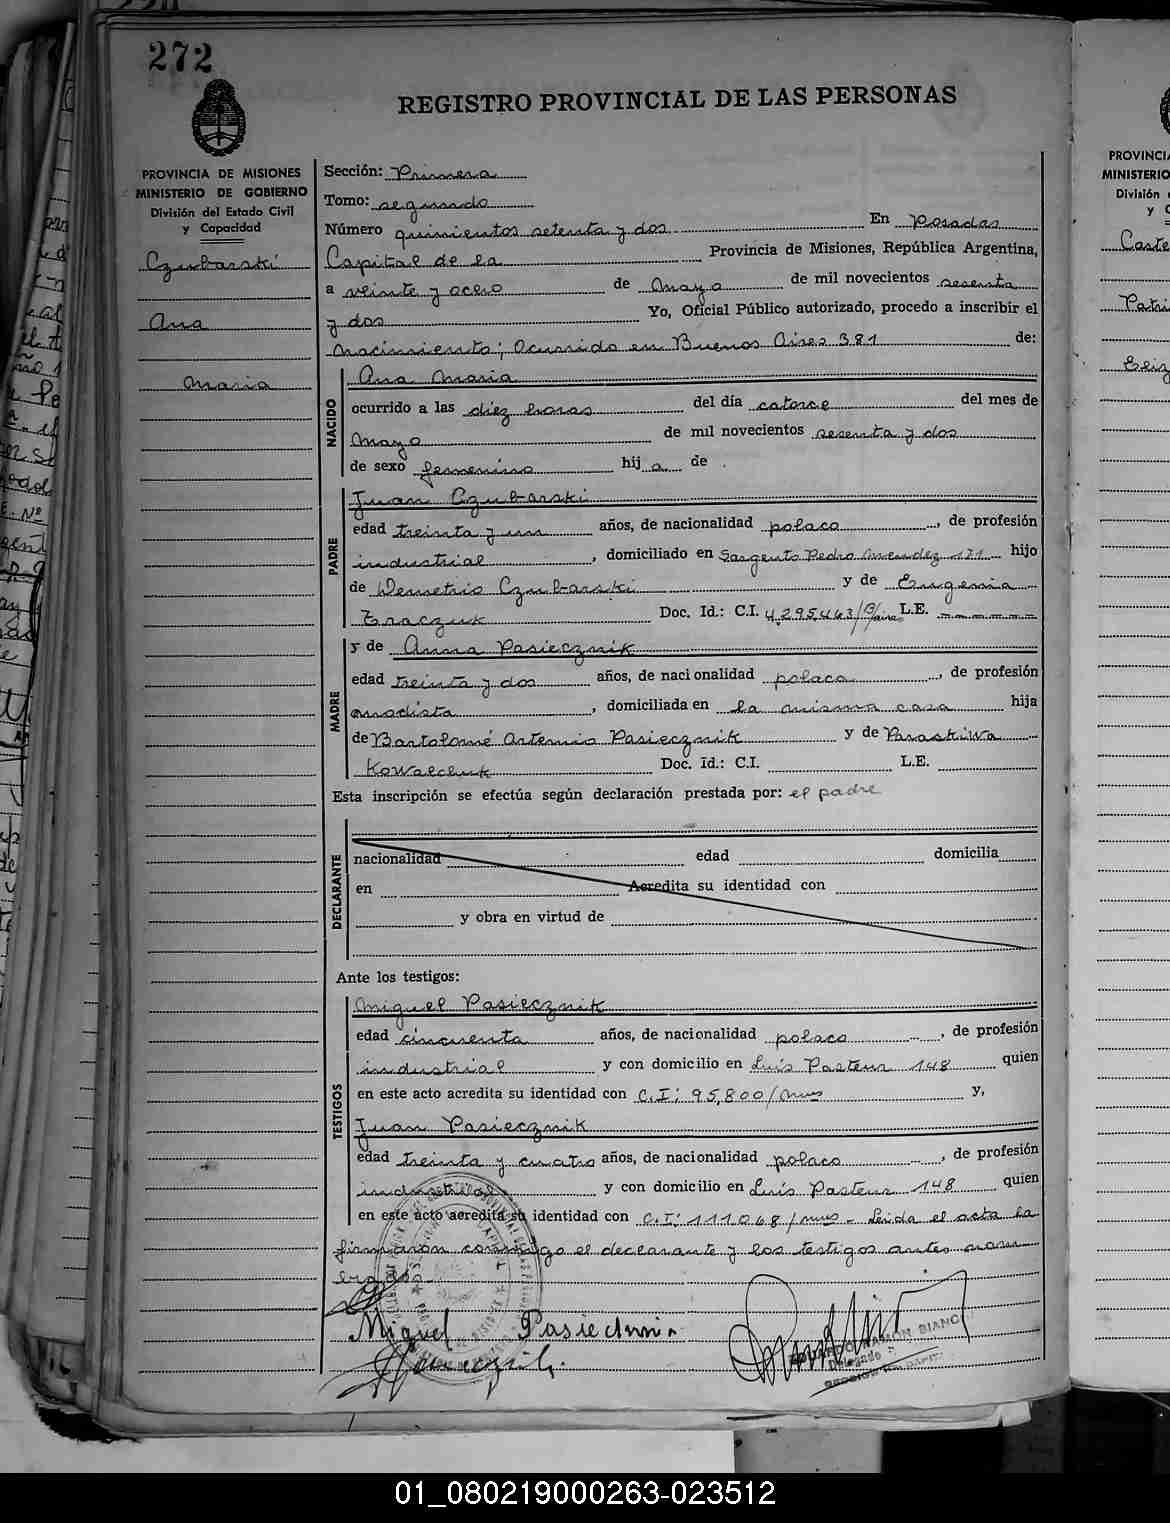 272
REGISTRO PROVINCIAL DE LAS PERSONAS
PROVINCIA DE MISIONES
MINISTERIO DE GOBIERNO
División del Estado Civil
y Capacidad
Czubarski
Ana
Maria
Sección: Primera
Tomo: segundo
Número quinientos setenta y dos En Posadas
Capital de la Provincia de Misiones, República Argentina,
a veinte y ocho de Mayo de mil novecientos sesenta
y dos Yo, Oficial Público autorizado, procedo a inscribir el
nacimiento; Ocurrido en Buenos Aires 381 de:
NACIDO
Ana Maria
ocurrido a las diez horas del día catorce del mes de
Mayo de mil novecientos sesenta y dos
de sexo femenino hija de
PADRE
Juan Czubarski
edad treinta y un años, de nacionalidad polaco, de profesión
industrial, domiciliado en Sargento Pedro Mendez 171 hijo
de Demetrio Czubarski y de Eugenia
Traczuk Doc. Id.: C.I. 4.295.463/B/aires L.E.
MADRE
y de Anna Pasiecznik
edad treinta y dos años, de nacionalidad polaca, de profesión
modista, domiciliada en la misma casa hija
de Bartolomé Artemio Pasiecznik y de Paraskiwa
Kowalchuk Doc. Id.: C.I. L.E.
Esta inscripción se efectúa según declaración prestada por: el padre
DECLARANTE
nacionalidad edad domicilia
en Acredita su identidad con
y obra en virtud de
Ante los testigos:
TESTIGOS
Miguel Pasiecznik
edad cincuenta años, de nacionalidad polaco, de profesión
industrial y con domicilio en Luis Pasteur 148 quien
en este acto acredita su identidad con C.I: 95,800/mnes y,
Juan Pasiecznik
edad treinta y cuatro años, de nacionalidad polaco, de profesión
industrial y con domicilio en Luis Pasteur 148 quien
en este acto acredita su identidad con C.I: 111068/mnes - Leida el acta la
firmaron conmigo el declarante y los testigos antes nom
Miguel
EDUARDO RAMON BIANC
Delegado
PROVINCIA
MINISTERIO
División
y C
Caste
Patri
01_080219000263-023512